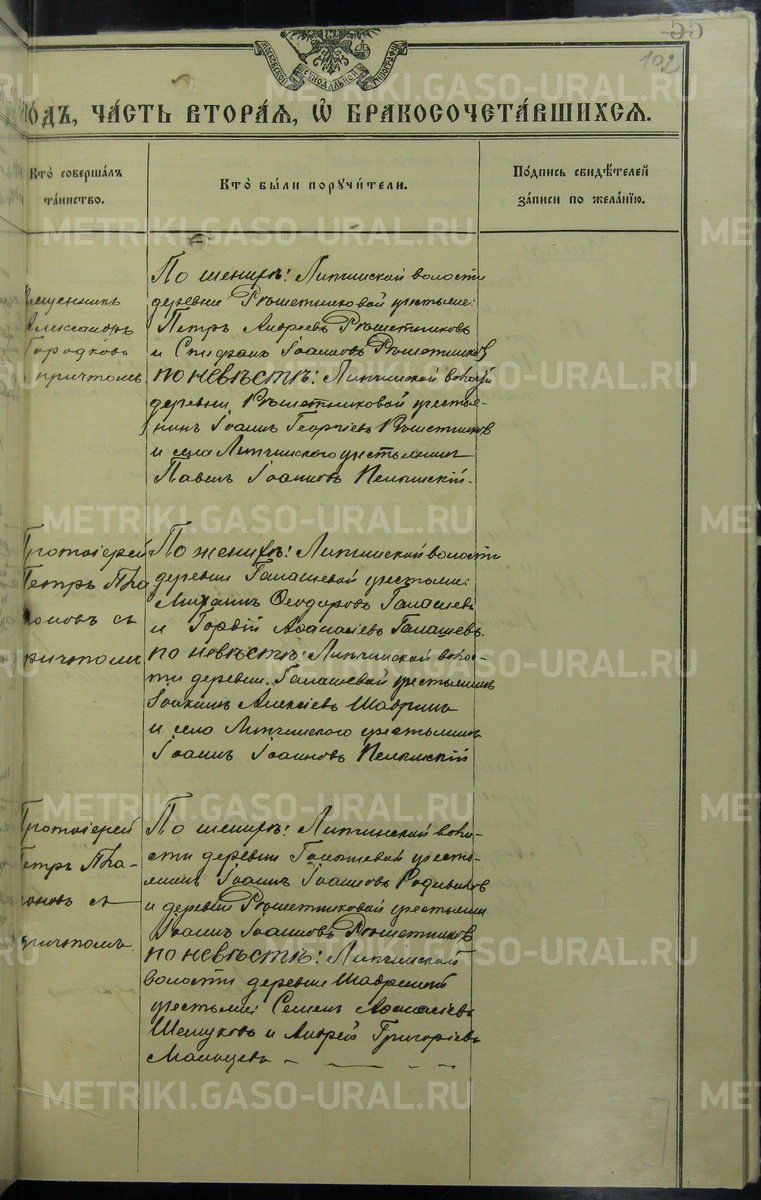 55
102
МОСКОВСКОЙ СѴНОДАЛЬНОЙ ТИПОГРАФІИ
ГОДЪ, ЧАСТЬ ВТОРАЯ, Ѡ БРАКОСОЧЕТАВШИХСЯ.
Кто совершалъ таинство.
Кто были поручители.
Подпись свидѣтелей записи по желанію.
Священникъ
Александръ
Городковъ
съ причтомъ
По женихѣ: Липчинской волости
деревни Рѣшетниковой крестьяне:
Петръ Андреевъ Рѣшетниковъ
и Стефанъ Іоанновъ Рѣшетниковъ
по невѣстѣ: Липчинской волости
деревни Рѣшетниковой кресть-
нинъ Іоаннъ Георгіевъ Рѣшетников
и села Липчинскаго крестьянинъ
Павелъ Іоанновъ Пелымскій.
Протоіерей
Петръ
съ
причтомъ
По женихѣ: Липчинской волости
деревни Галашевой крестьяне:
Михаилъ Ѳеодоровъ Галашевъ
и Гордій Аѳанасіевъ Галашевъ.
по невѣстѣ: Липчинской воло-
сти деревни Галашевой крестьянинъ
Іоакимъ Алексіевъ Шавринъ
и села Липчинского крестьянинъ
Іоаннъ Іоанновъ Пелымскій
Протоіерей
Петръ
съ
причтомъ
По женихѣ: Липчинской воло-
сти деревни Галашевой кресть-
янинъ Іоаннъ Іоанновъ Родивиловъ
и деревни Рѣшетниковой крестьянин
Іоаннъ Іоанновъ Рѣшетников
по невѣстѣ: Липчинской
волости деревни Шавриной
крестьяне: Семенъ Аѳанасіевъ
Шешуковъ и Андрей Григоріевъ
Мальцевъ
METRIKI.GASO-URAL.RU